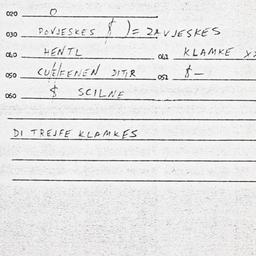 020 O
030 POVJESKES $ ) = ZAVJESKES
040 HENTL 041 KLAMKE
050 DITIR 051 $ -
060 $ SCILNE
DI TREJFE KLAMKES